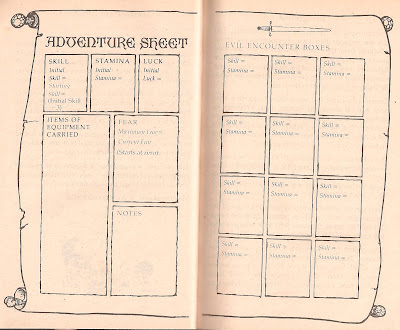 ADVENTURE SHEET
SKILL
Initial
Skill =
Starting
Skill =
(Initial Skill
STAMINA
Initial
Stamina =
LUCK
Initial
Luck =
ITEMS OF
EQUIPMENT
CARRIED
FEAR
Maximum Fear =
Current Fear
(Starts at zero)
NOTES
EVIL ENCOUNTER BOXES
Skill =
Stamina =
Skill =
Stamina =
Skill =
Stamina =
Skill =
Stamina =
Skill =
Stamina =
Skill =
Stamina =
Skill =
Stamina =
Skill =
Stamina =
Skill =
Stamina =
Skill =
Stamina =
Skill =
Stamina =
Skill =
Stamina =